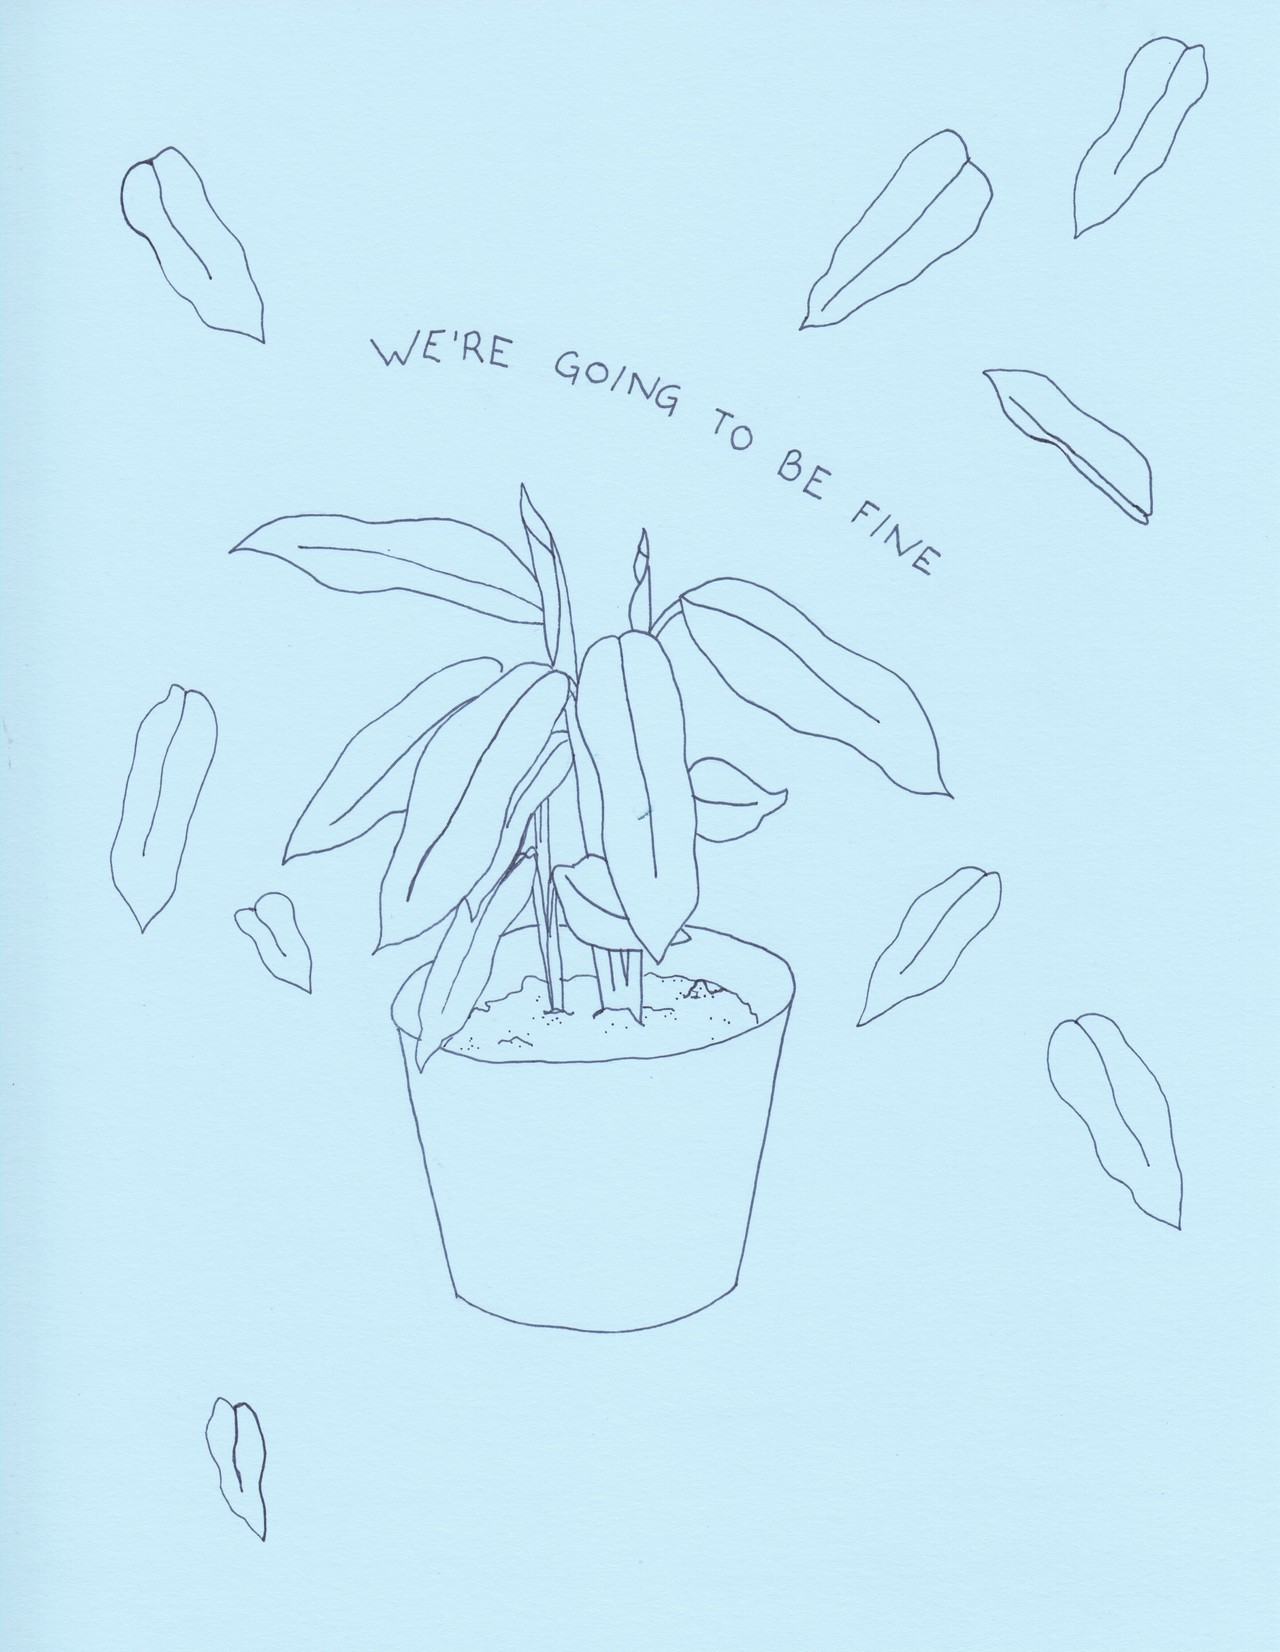 WE'RE GOING TO BE FINE